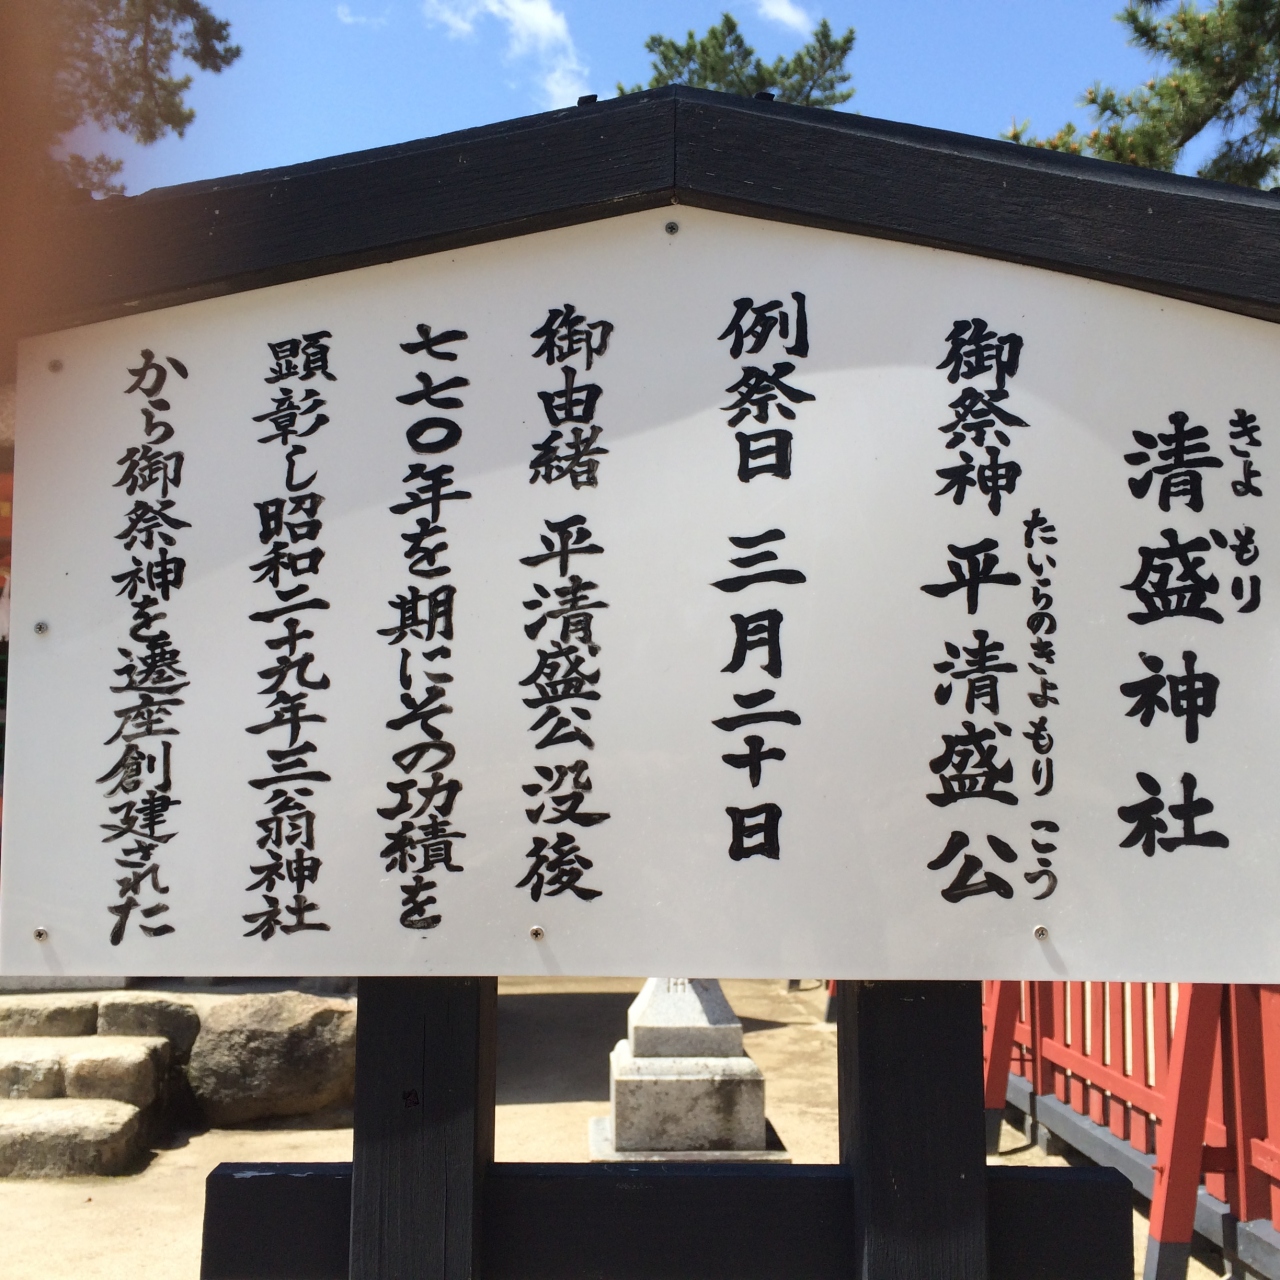 きよもり
清盛神社
たいらのきよもりこう
御祭神 平清盛公
例祭日 三月二十日
御由緒 平清盛公没後
七七〇年を期にその功績を
顕彰し昭和二十九年三翁神社
から御祭神を遷座創建された